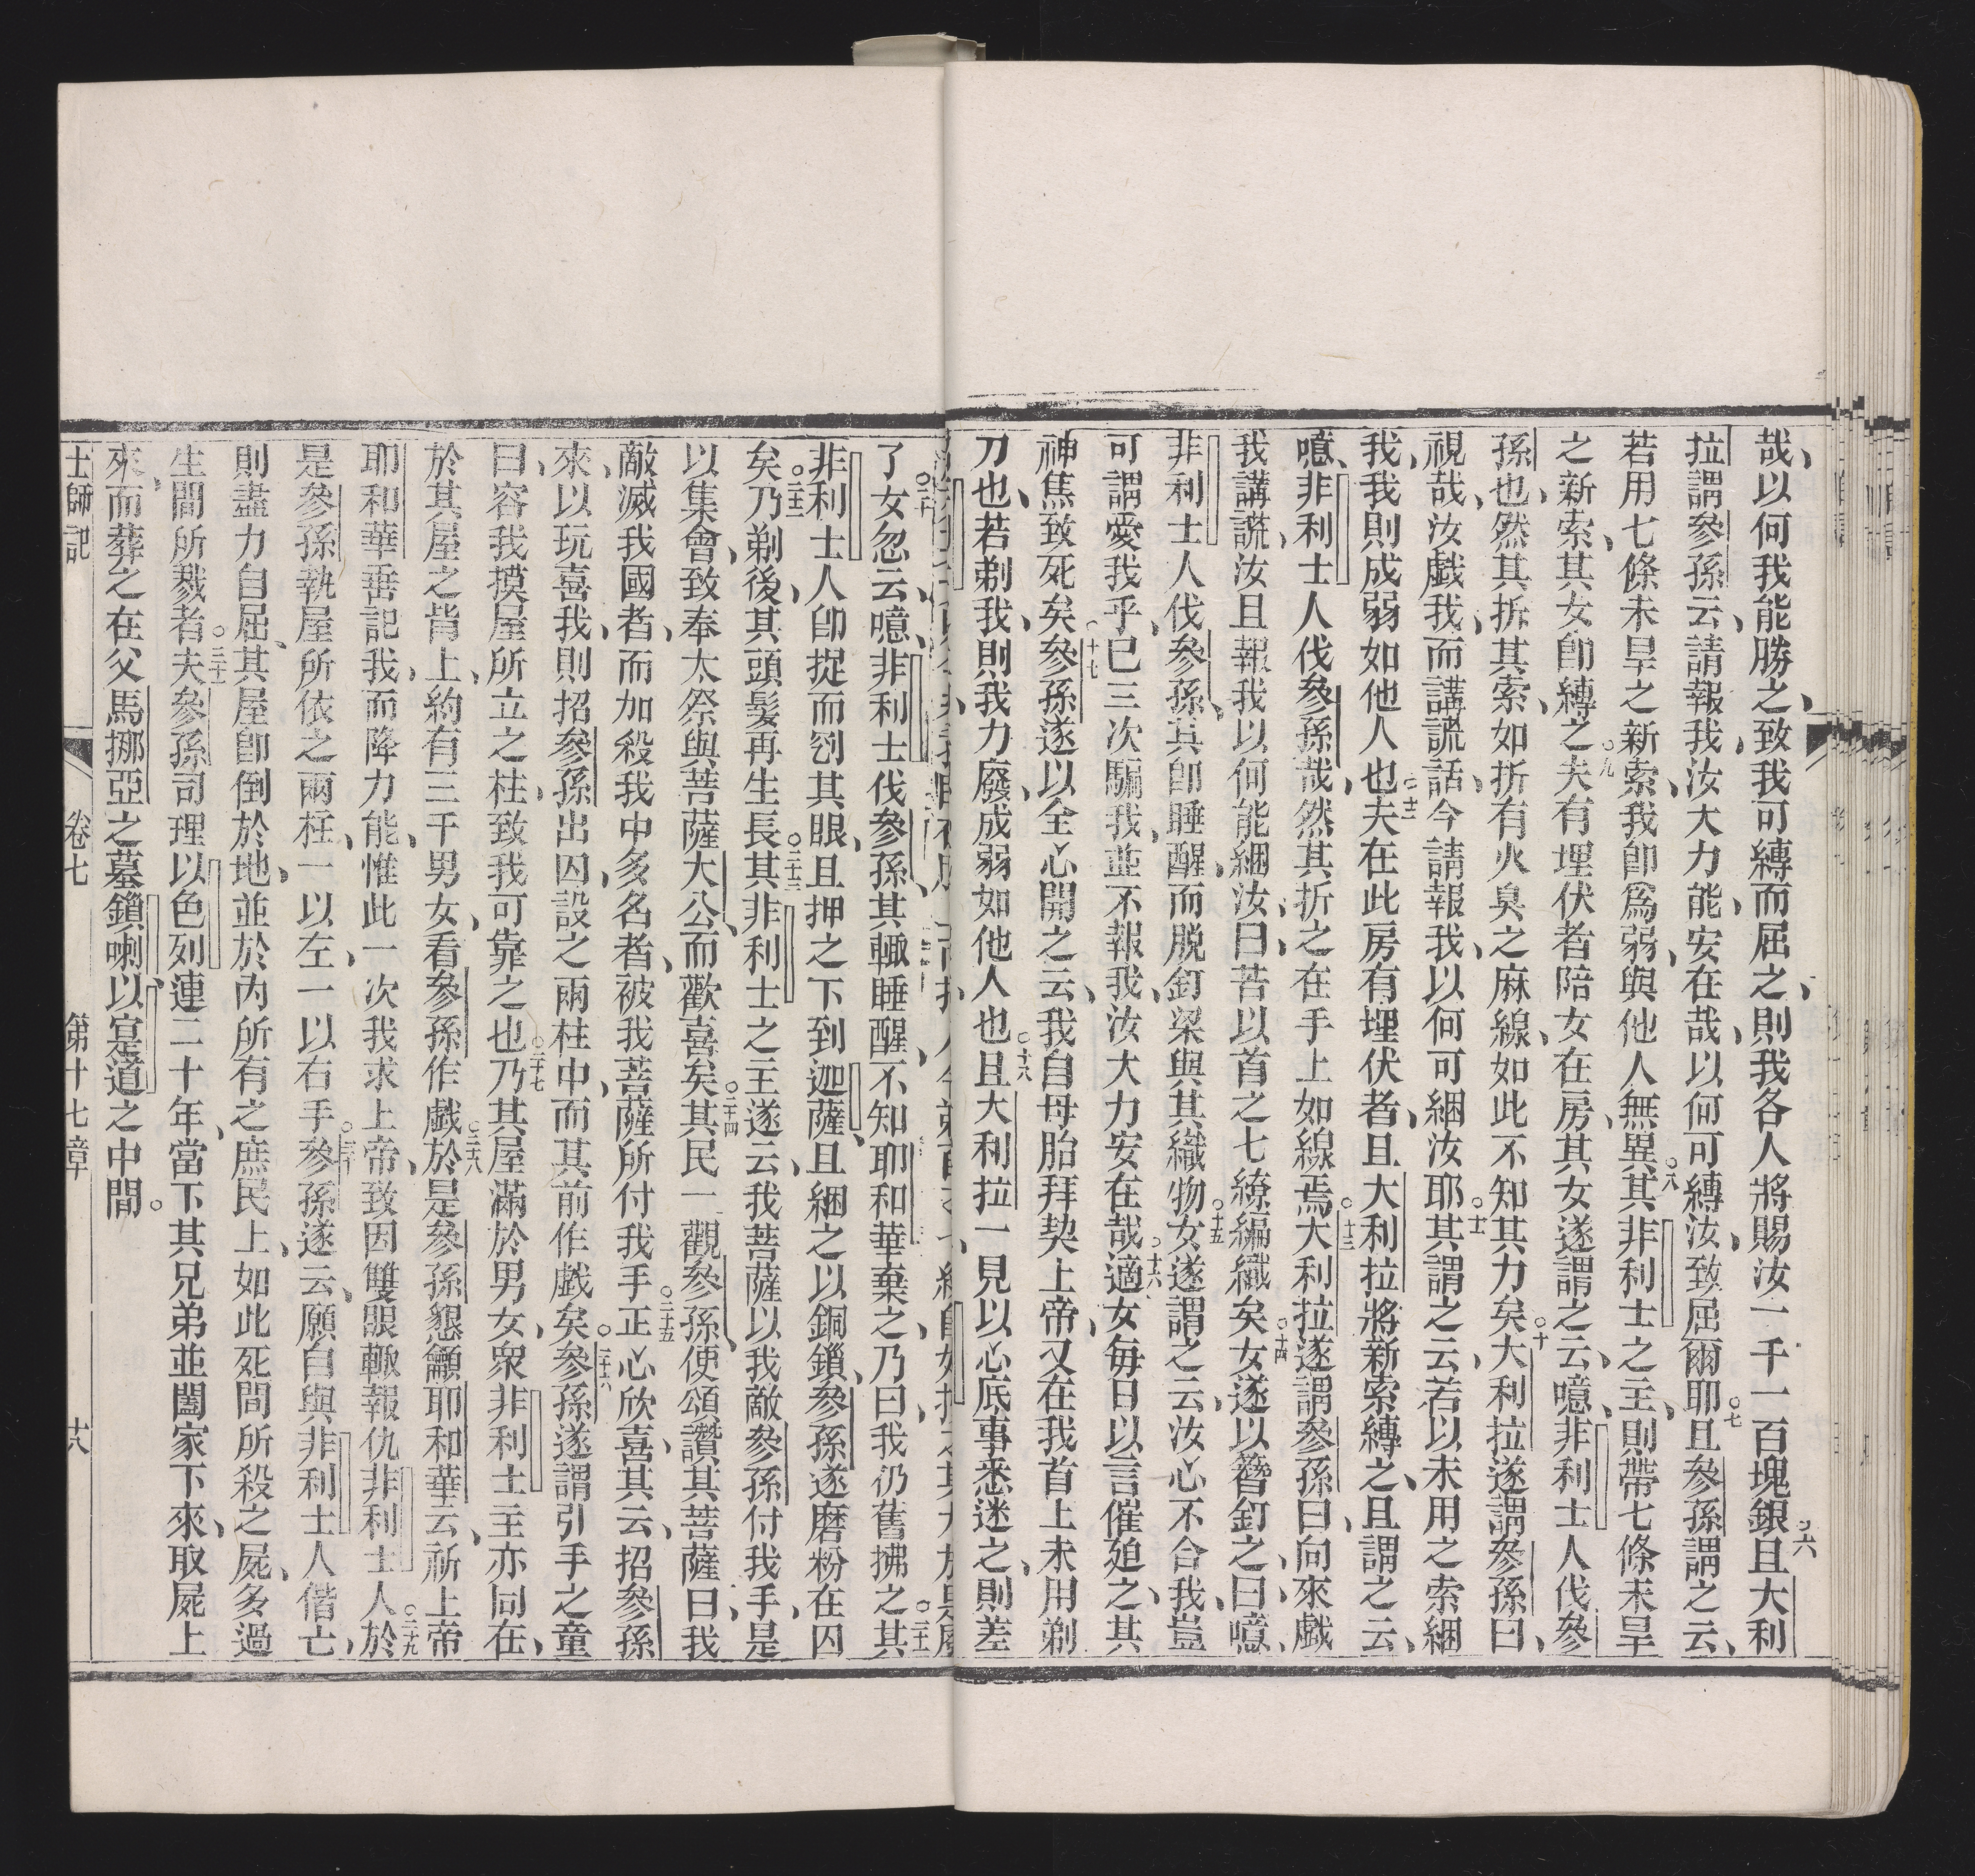 哉、以何我能勝之、致我可縛而屈之、則我各人將賜汝一千一百塊銀○六且大利
拉謂參孫云、請報我、汝大力能、安在哉、以何可縛汝、致屈爾耶○七且參孫謂之云、
若用七條未旱之新索、我卽爲弱、與他人無異○八其非利士之主、則帶七條未旱
之新索、其女卽縛之○九夫有埋伏者陪女在房、其女遂謂之云、噫、非利士人伐參
孫也、然其拆其索、如折有火臭之麻線、如此不知其力矣○十大利拉遂謂參孫曰、
視哉、汝戲我、而講謊話、今請報我、以何可綑汝耶○十一其謂之云、若以未用之索綑
我、我則成弱如他人也○十二夫在此房有埋伏者、且大利拉將新索縛之、且謂之云、
噫、非利士人伐參孫哉、然其折之在手上如線焉○十三大利拉遂謂參孫曰、向來戲
我講謊、汝且報我以何能綑汝、曰、苦以首之七繚編織矣○十四女遂以簪釘之、曰、噫、
非利士人伐參孫、其卽睡醒、而脫釘梁與其織物○十五女遂謂之云、汝心不合我、豈
可謂愛我乎、已三次騙我、並不報我、汝大力安在哉○十六適女每日以言催廹之、其
神焦致死矣○十七參孫遂以全心開之云、我自母胎拜契上帝、又在我首上未用剃
刀也、若剃我、則我力廢、成弱如他人也○十八且大利拉一見以心底事悉迷之、則差
了○二十女忽云、噫、非利士伐參孫、其輙睡醒、不知耶和華棄之、乃曰、我仍舊拂之○二十一其
非利士人卽捉而刳其眼、且押之下到迦薩、且綑之以銅鎖、參孫遂磨粉在囚
矣○二十二乃剃後、其頭髮再生長○二十三其非利士之主遂云、我菩薩以我敵參孫付我手、是
以集會、致奉太祭與菩薩大公、而歡喜矣○二十四其民一觀參孫、使頌讚其菩薩曰、我
敵滅我國者、而加殺我中多名者、被我菩薩所付我手○二十五正心欣喜、其云、招參孫
來、以玩喜我、則招參孫出囚、設之兩柱中、而其前作戲矣○二十六參孫遂謂引手之童
曰、容我摸屋所立之柱、致我可靠之也○二十七乃其屋滿於男女、衆非利士主亦同在、
於其屋之背上、約有三千男女、看參孫作戲○二十八於是參孫懇籲耶和華云、祈上帝
耶和華垂記我、而降力能、惟此一次我求上帝、致因雙眼輙報仇非利士人○二十九於
是參孫執屋所依之兩柱、一以左、一以右手○三十參孫遂云、願自與非利士人偕亡、
則盡力自屈、其屋卽倒於地、並於內所有之庶民上、如此死間所殺之屍、多過
生間所戮者○三十一夫參孫司理以色列連二十年、當下其兄弟並闔家下來、取屍上
來、而葬之在父馬挪亞之墓、鎖喇、以寔道之中間。
士師記　卷七　第十七章　十八